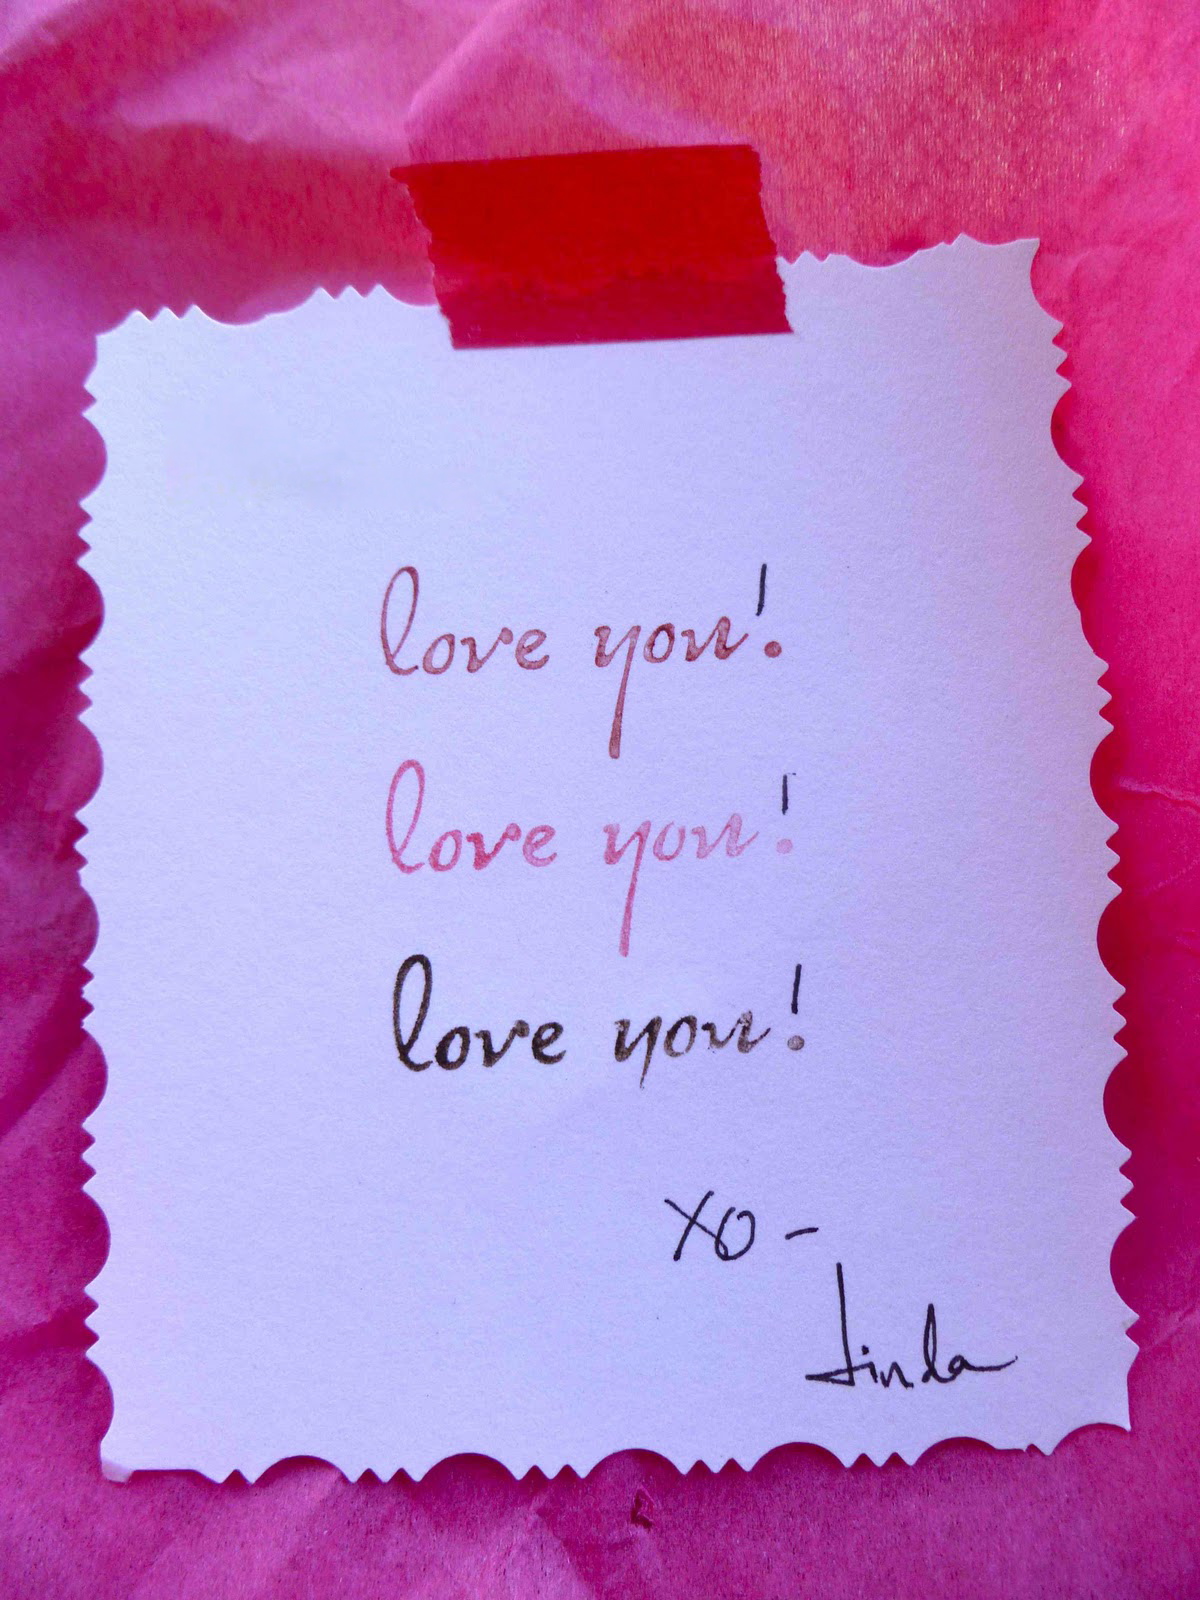 love you!
love you!
love you!
xo -
Linda